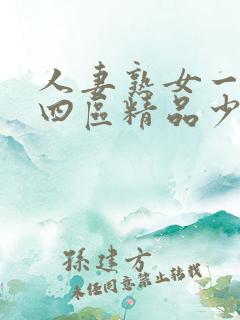 人妻熟女一
四區精品少
孫建方
未经同意禁止转载